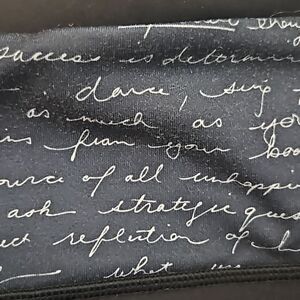 success is determined
dance, sing
as much as you
from your
ource of all unhappi
ask strategic ques
ect reflection of
what